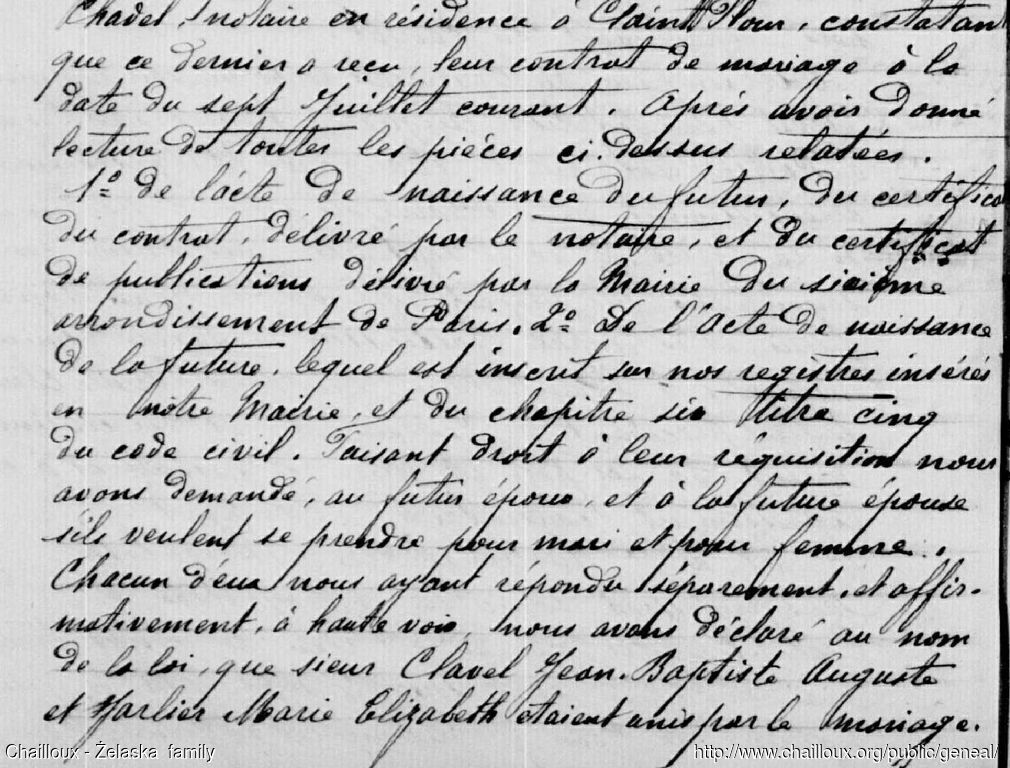 Chadel, notaire en résidence à Saint Flour, constatant
que ce dernier a reçu, leur contrat de mariage à la
date du sept Juillet courant. Après avoir donné
lecture de toutes les pièces ci-dessus relatées.
1º de l'acte de naissance du futur, du certifica
du contrat, délivré par le notaire, et du certificat
de publications délivré par la Mairie du sixième
arrondissement de Paris. 2º De l'Acte de naissance
de la future, lequel est inscrit sur nos registres insérés
en notre Mairie, et du chapitre six titre cinq
du code civil. Faisant droit à leur réquisition nous
avons demandé, au futur époux, et à la future épouse
s'ils veulent se prendre pour mari et pour femme.
Chacun d'eux nous ayant répondu séparement, et affir-
mativement, à haute voix, nous avons déclaré au nom
de la loi, que sieur Clavel Jean-Baptiste Auguste
et Marie Elizabeth etaient unis par le mariage.
Chailloux - Żelaska family
http://www.chailloux.org/public/geneal/